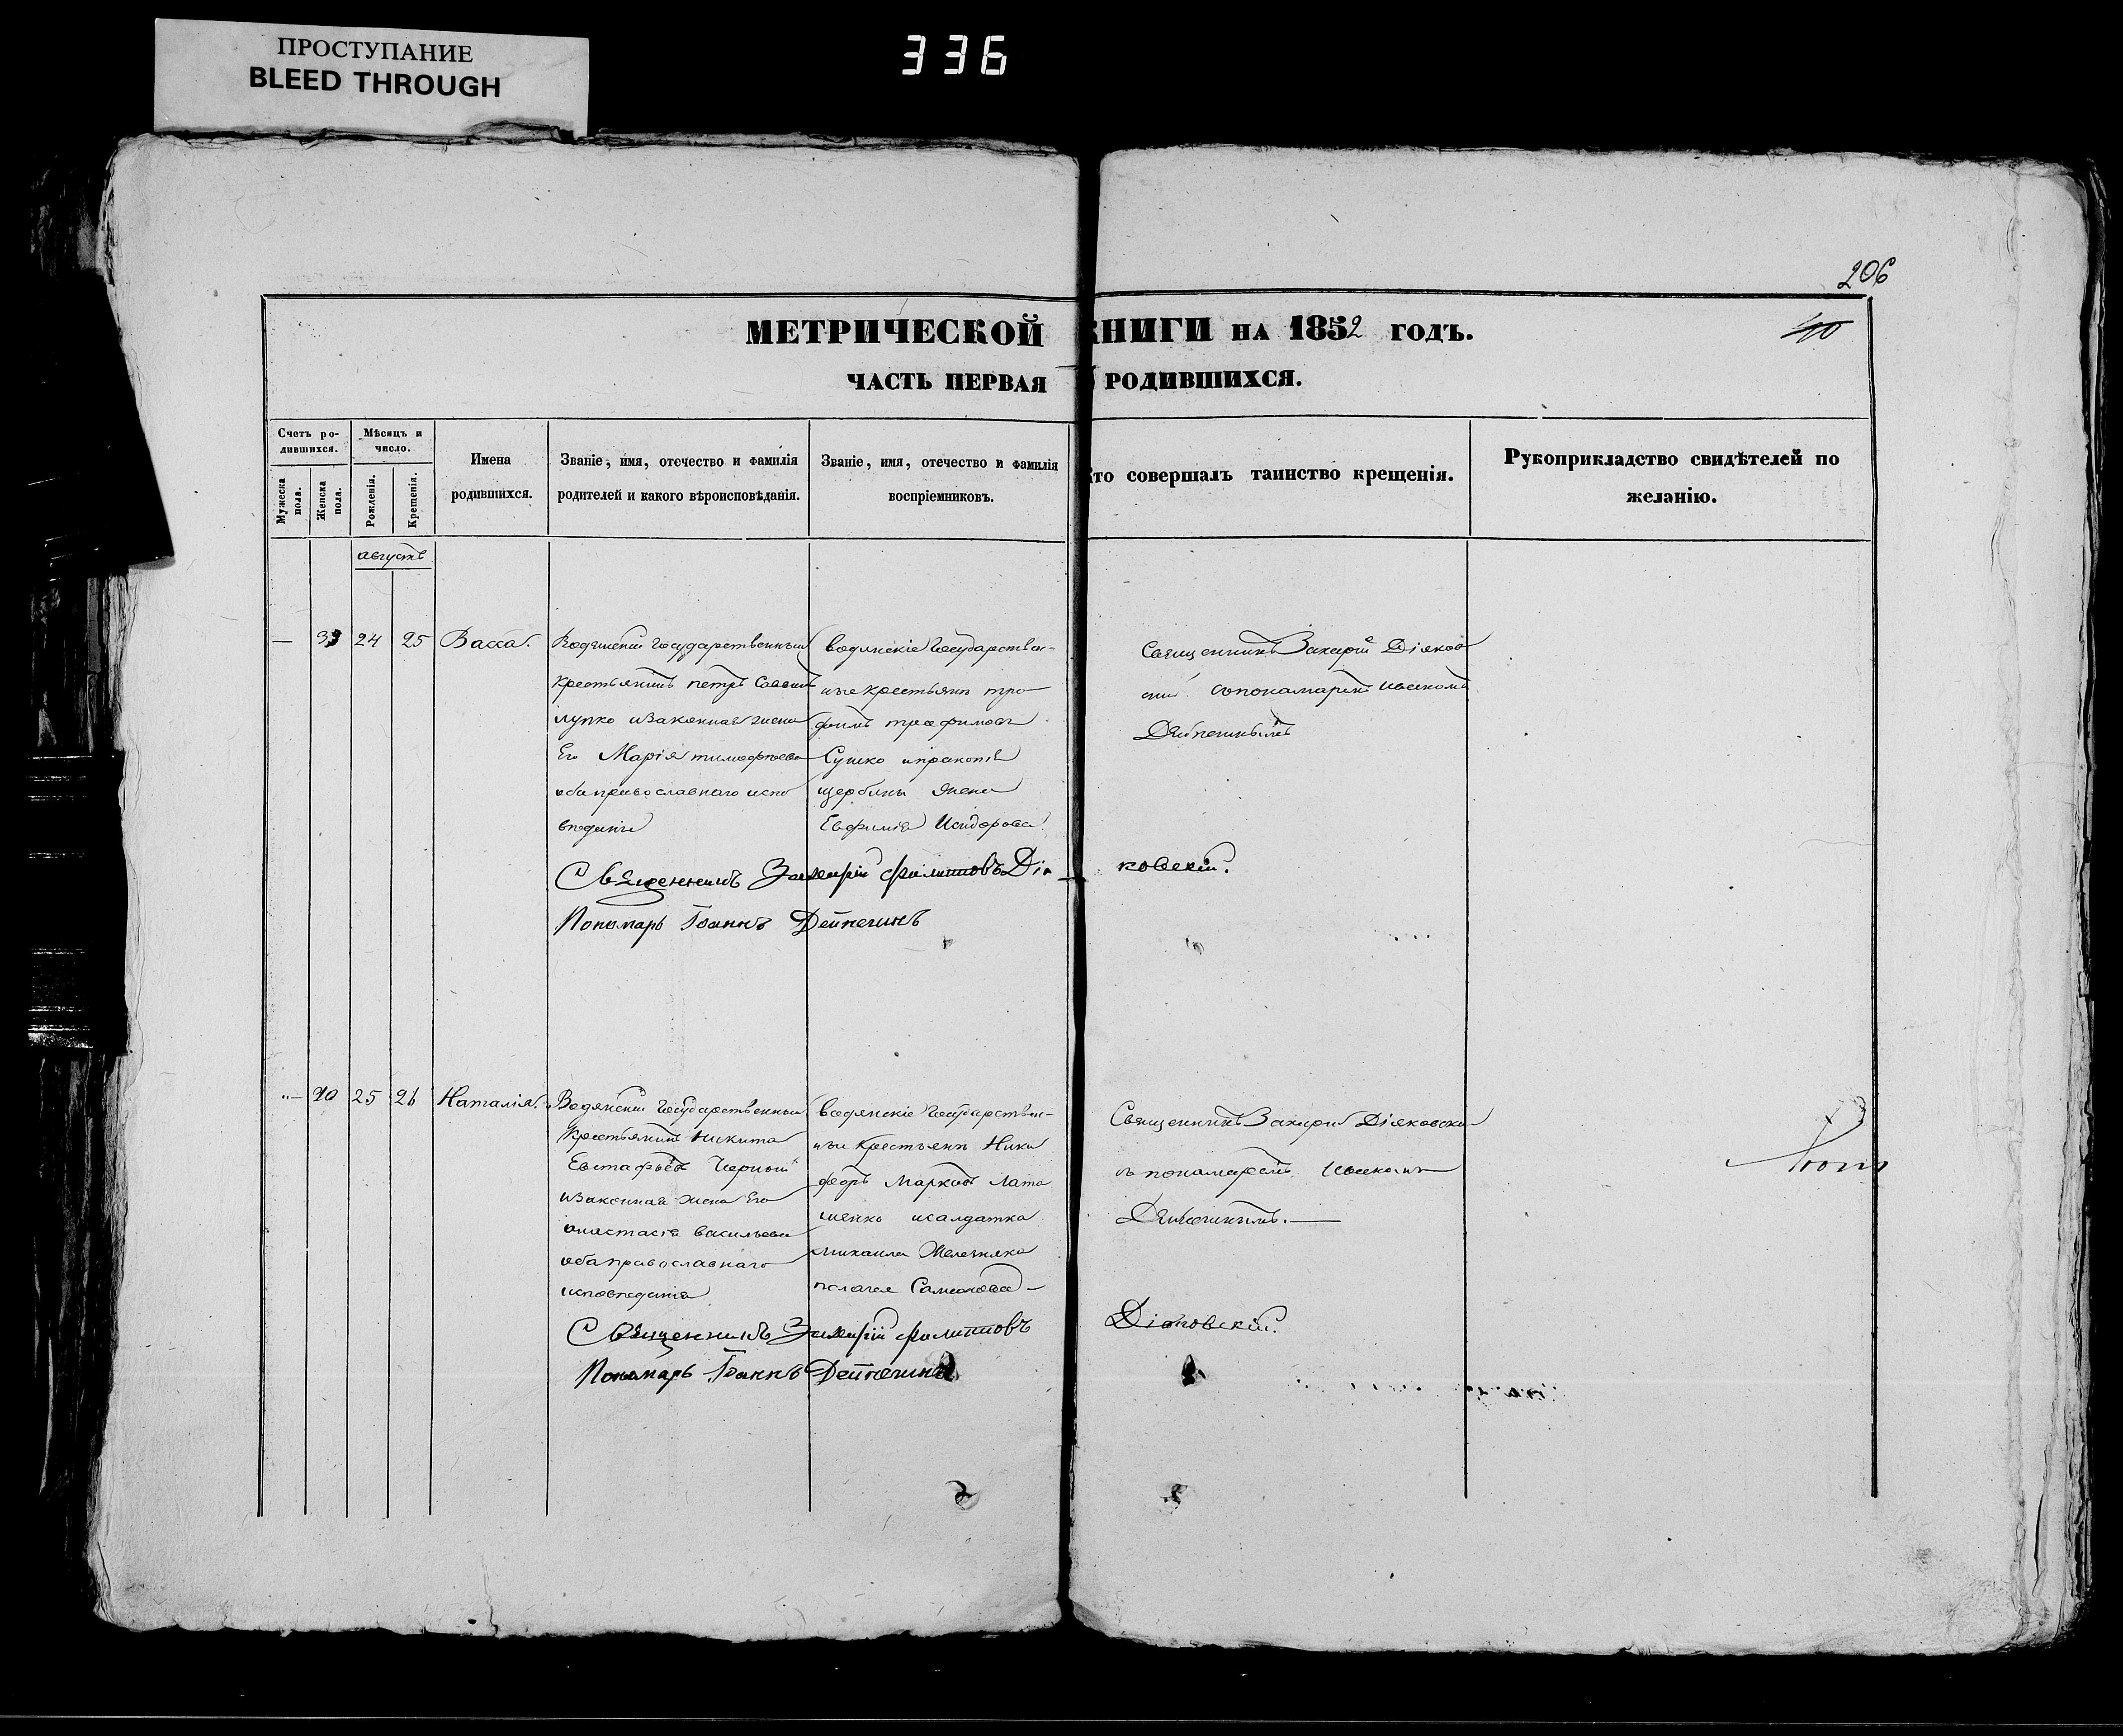 ПРОСТУПАНИЕ
BLEED THROUGH
336
206
МЕТРИЧЕСКОЙ КНИГИ НА 1852 ГОДЪ.
40
ЧАСТЬ ПЕРВАЯ РОДИВШИХСЯ.
Счетъ ро-
дившихся.
Мужеска
пола.
Женска
пола.
Мѣсяцъ и
число.
Рожденія.
Крещенія.
Имена
родившихся.
Званіе, имя, отечество и фамилія
родителей и какого вѣроисповѣданія.
Званіе, имя, отечество и фамилія
воспріемниковъ.
Кто совершалъ таинство крещенія.
Рукоприкладство свидѣтелей по
желанію.
августъ
— 39 24 25 Васса.
Водянскій государственный
крестьянинъ петръ Саввинъ
лупко изаконная жена
Его Марія тимофѣева
оба православнаго испо
вѣданія
водянскіе государствен-
ные крестьяне тро
фимъ трофимовъ
Сушко
щербины жена
Евфимія Исидорова.
Священникъ Захарій Діяков
скій съпонамаремъ
Священникъ Захарій филиповъ Діаковскій.
Пономарь Іоаннъ Дейнегинъ
„— 40 25 26 Наталія.
Водянскій государственный
крестьянинъ Никита
Евстафьевъ Черный
изаконная жена Его
анастасія васильева
оба православнаго
исповѣданія
водянскіе государствен-
ные крестьяне Ники
форъ Марковъ Лата
шенко исалдатка
михаила Железняка
пелагея Самойлова —
Священникъ Захарій Діяковскій
съ понамаремъ
Священникъ Захарій филиповъ Діаковскій.
Пономарь Іоаннъ Дейнегинъ